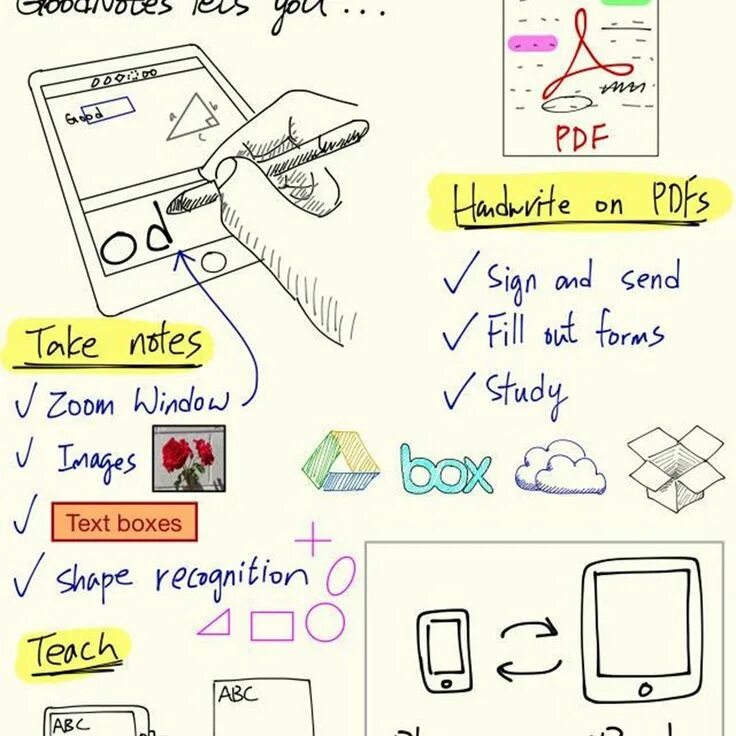 GoodNotes lets you ...
Good
a
b
c
od
PDF
Handwrite on PDFs
Sign and send
Fill out forms
Study
Take notes
Zoom Window
Images
Text boxes
Shape recognition
box
Teach
ABC
ABC